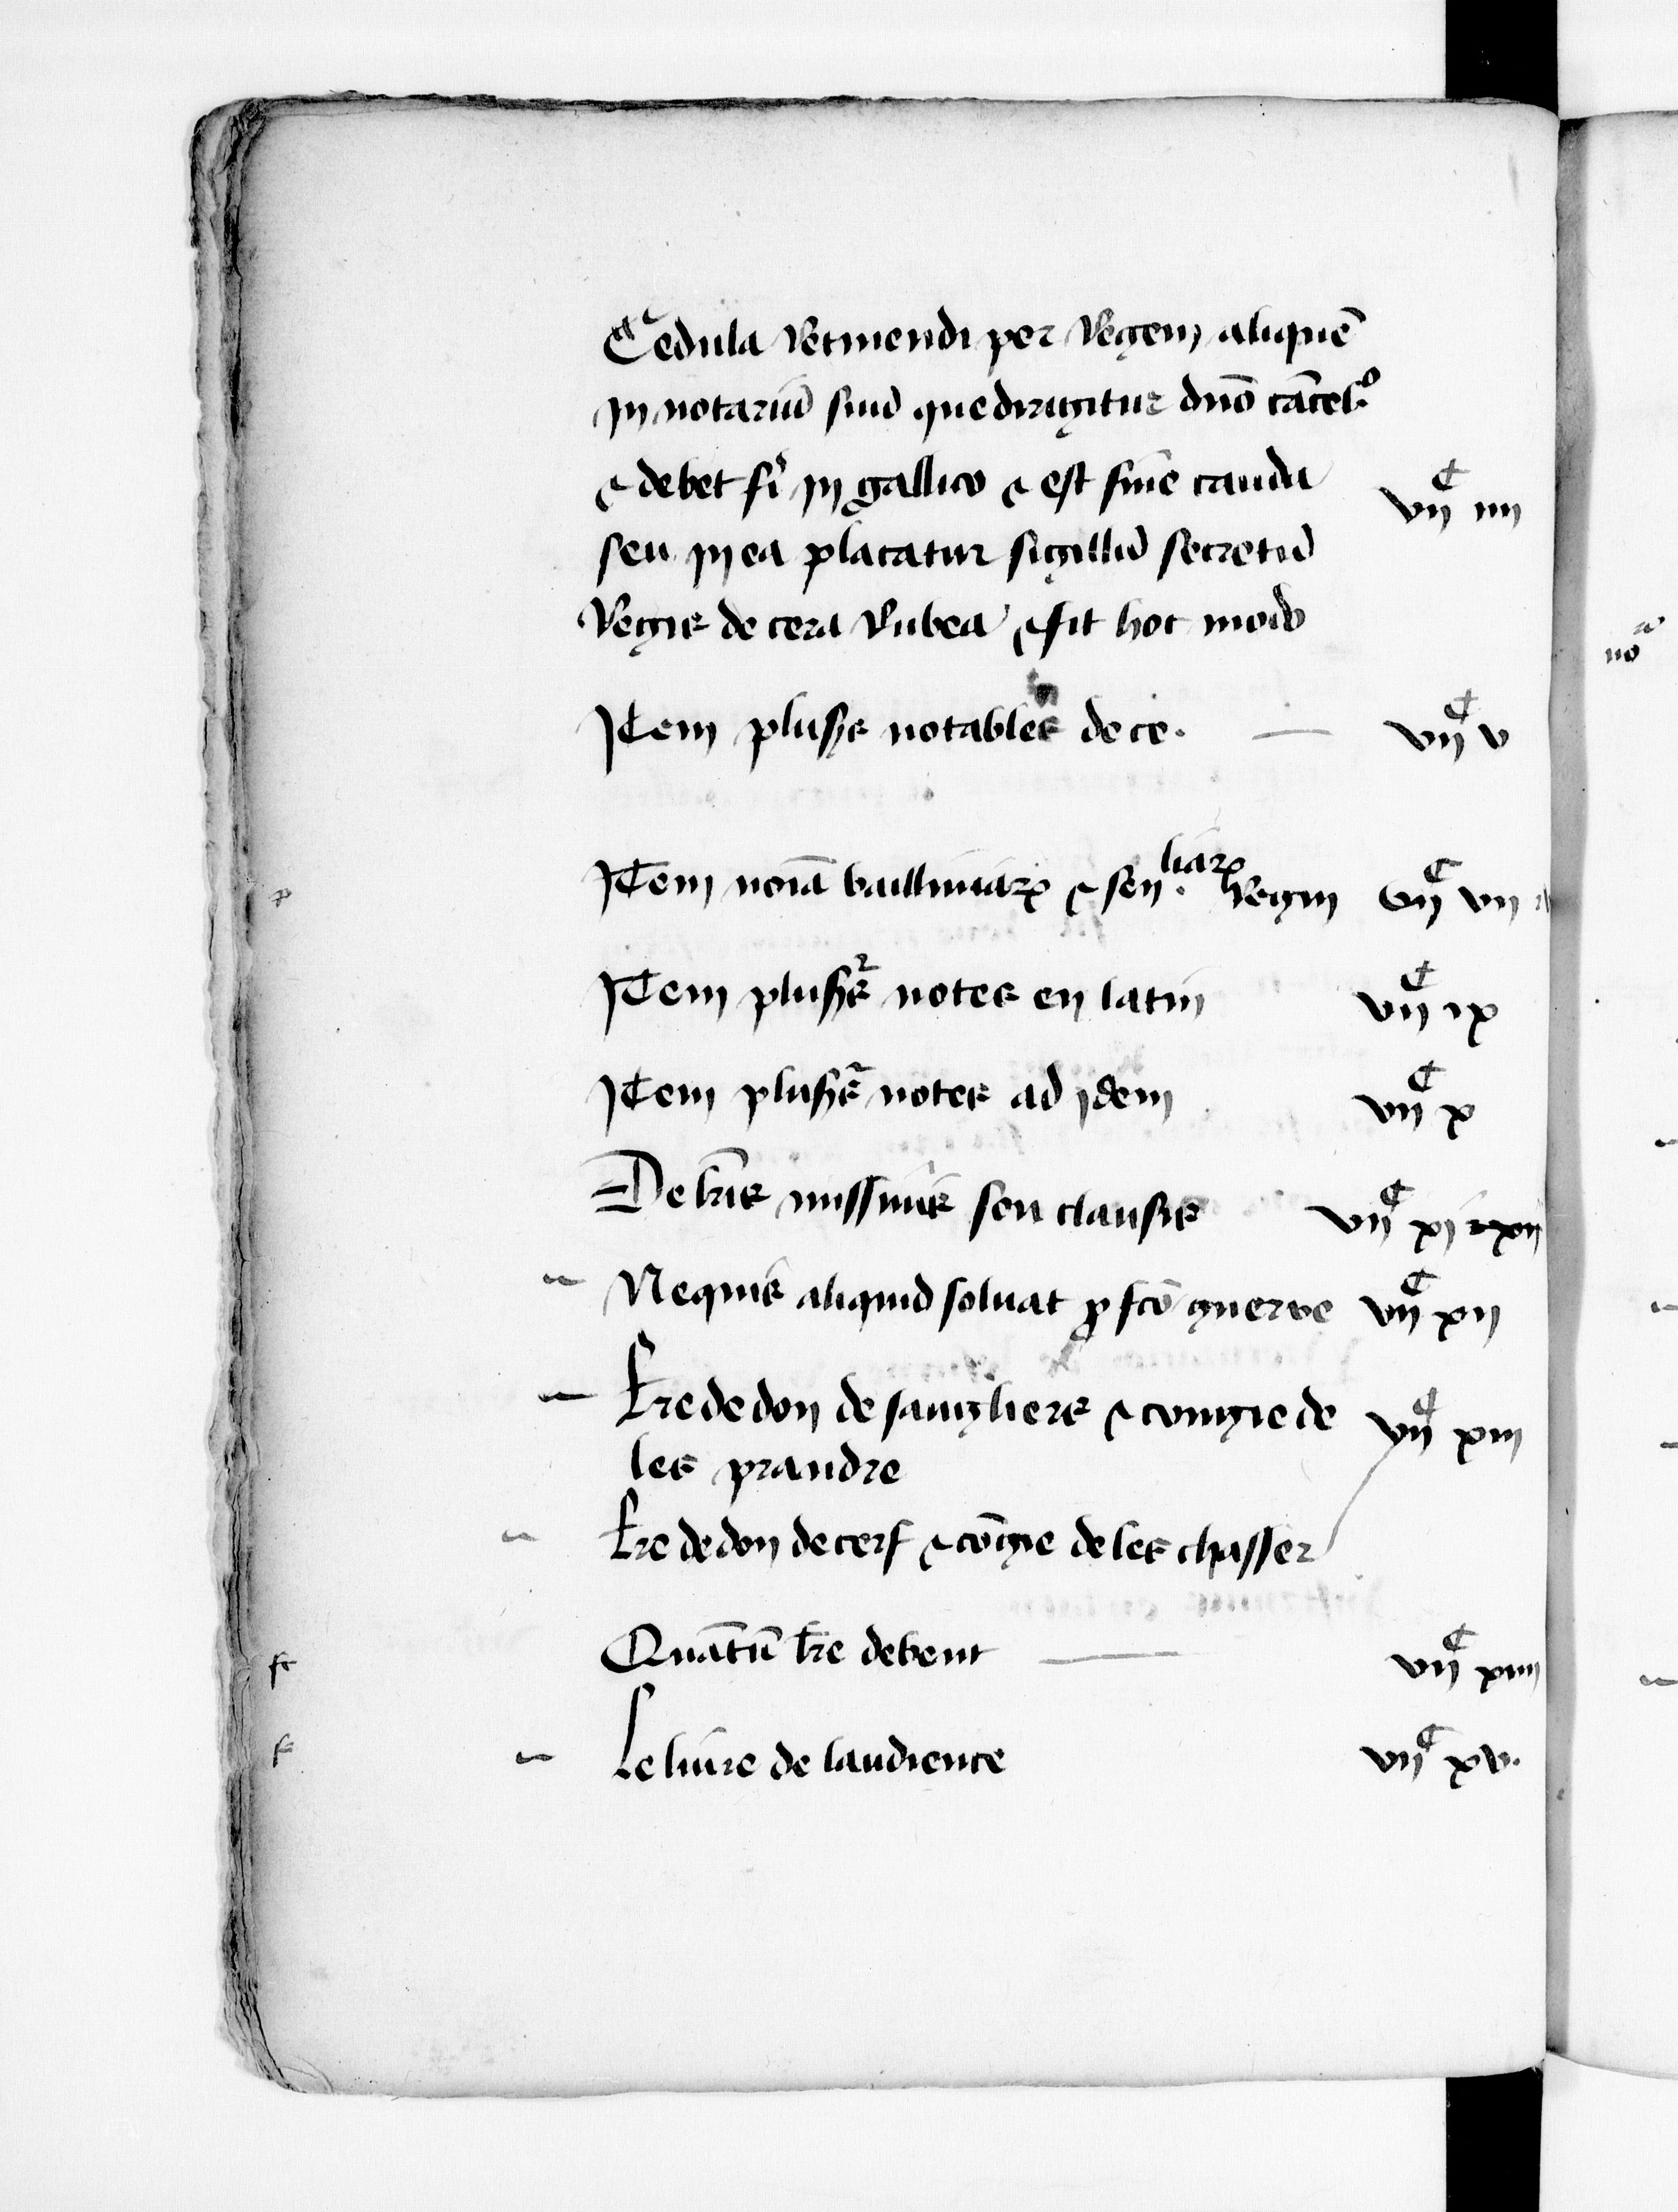 Cedula Retinendi per Regem aliquē
in notariū suū que dirigitur dn̄o cācell.º
⁊ debet fi' in gallico ⁊ est sine cauda vijᶜ iiij
seu in ea placatur sigillū secretū
Regis de cera Rubea ⁊ fit hoc modo
Item plus̄rs notables de ce. vijᶜ v
Item noīa bailliuiarꝝ ⁊ sen.liarꝝ Regni vijᶜ vij
Item plus̄rs notes en latin vijᶜ ix
Item plus̄rs notes ad idem vijᶜ x
De l̄ris missiuis seu clausis vijᶜ xj ⁊ xij
Ne quis aliquid soluat ꝓ fc̄o guerre vijᶜ xij
L̄re de don de sangliers ⁊ congie de vijᶜ xiij
les prandre
L̄re de don de cerf ⁊ cōgie de les chasser
Quātū l̄re debent vijᶜ xiiij
Le liure de laudience vijᶜ xv.
noᵃ